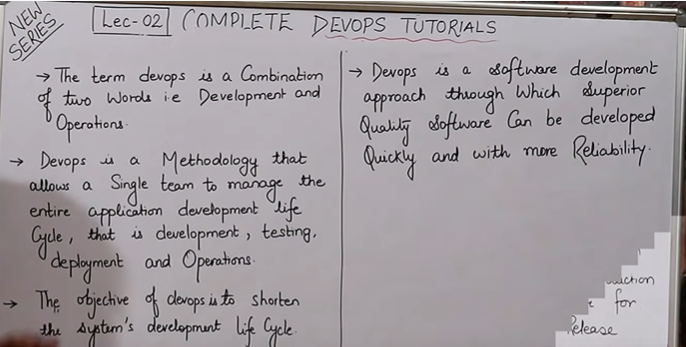 NEW
SERIES
Lec-02 COMPLETE DEVOPS TUTORIALS
→ The term devops is a Combination
of two Words i.e Development and
Operations.
→ Devops is a Methodology that
allows a Single team to manage the
entire application development life
Cycle, that is development, testing,
deployment and Operations.
→ The objective of devops is to shorten
the system's development life Cycle.
→ Devops is a software development
approach through Which Superior
Quality software Can be developed
Quickly and with more Reliability.
for
Release